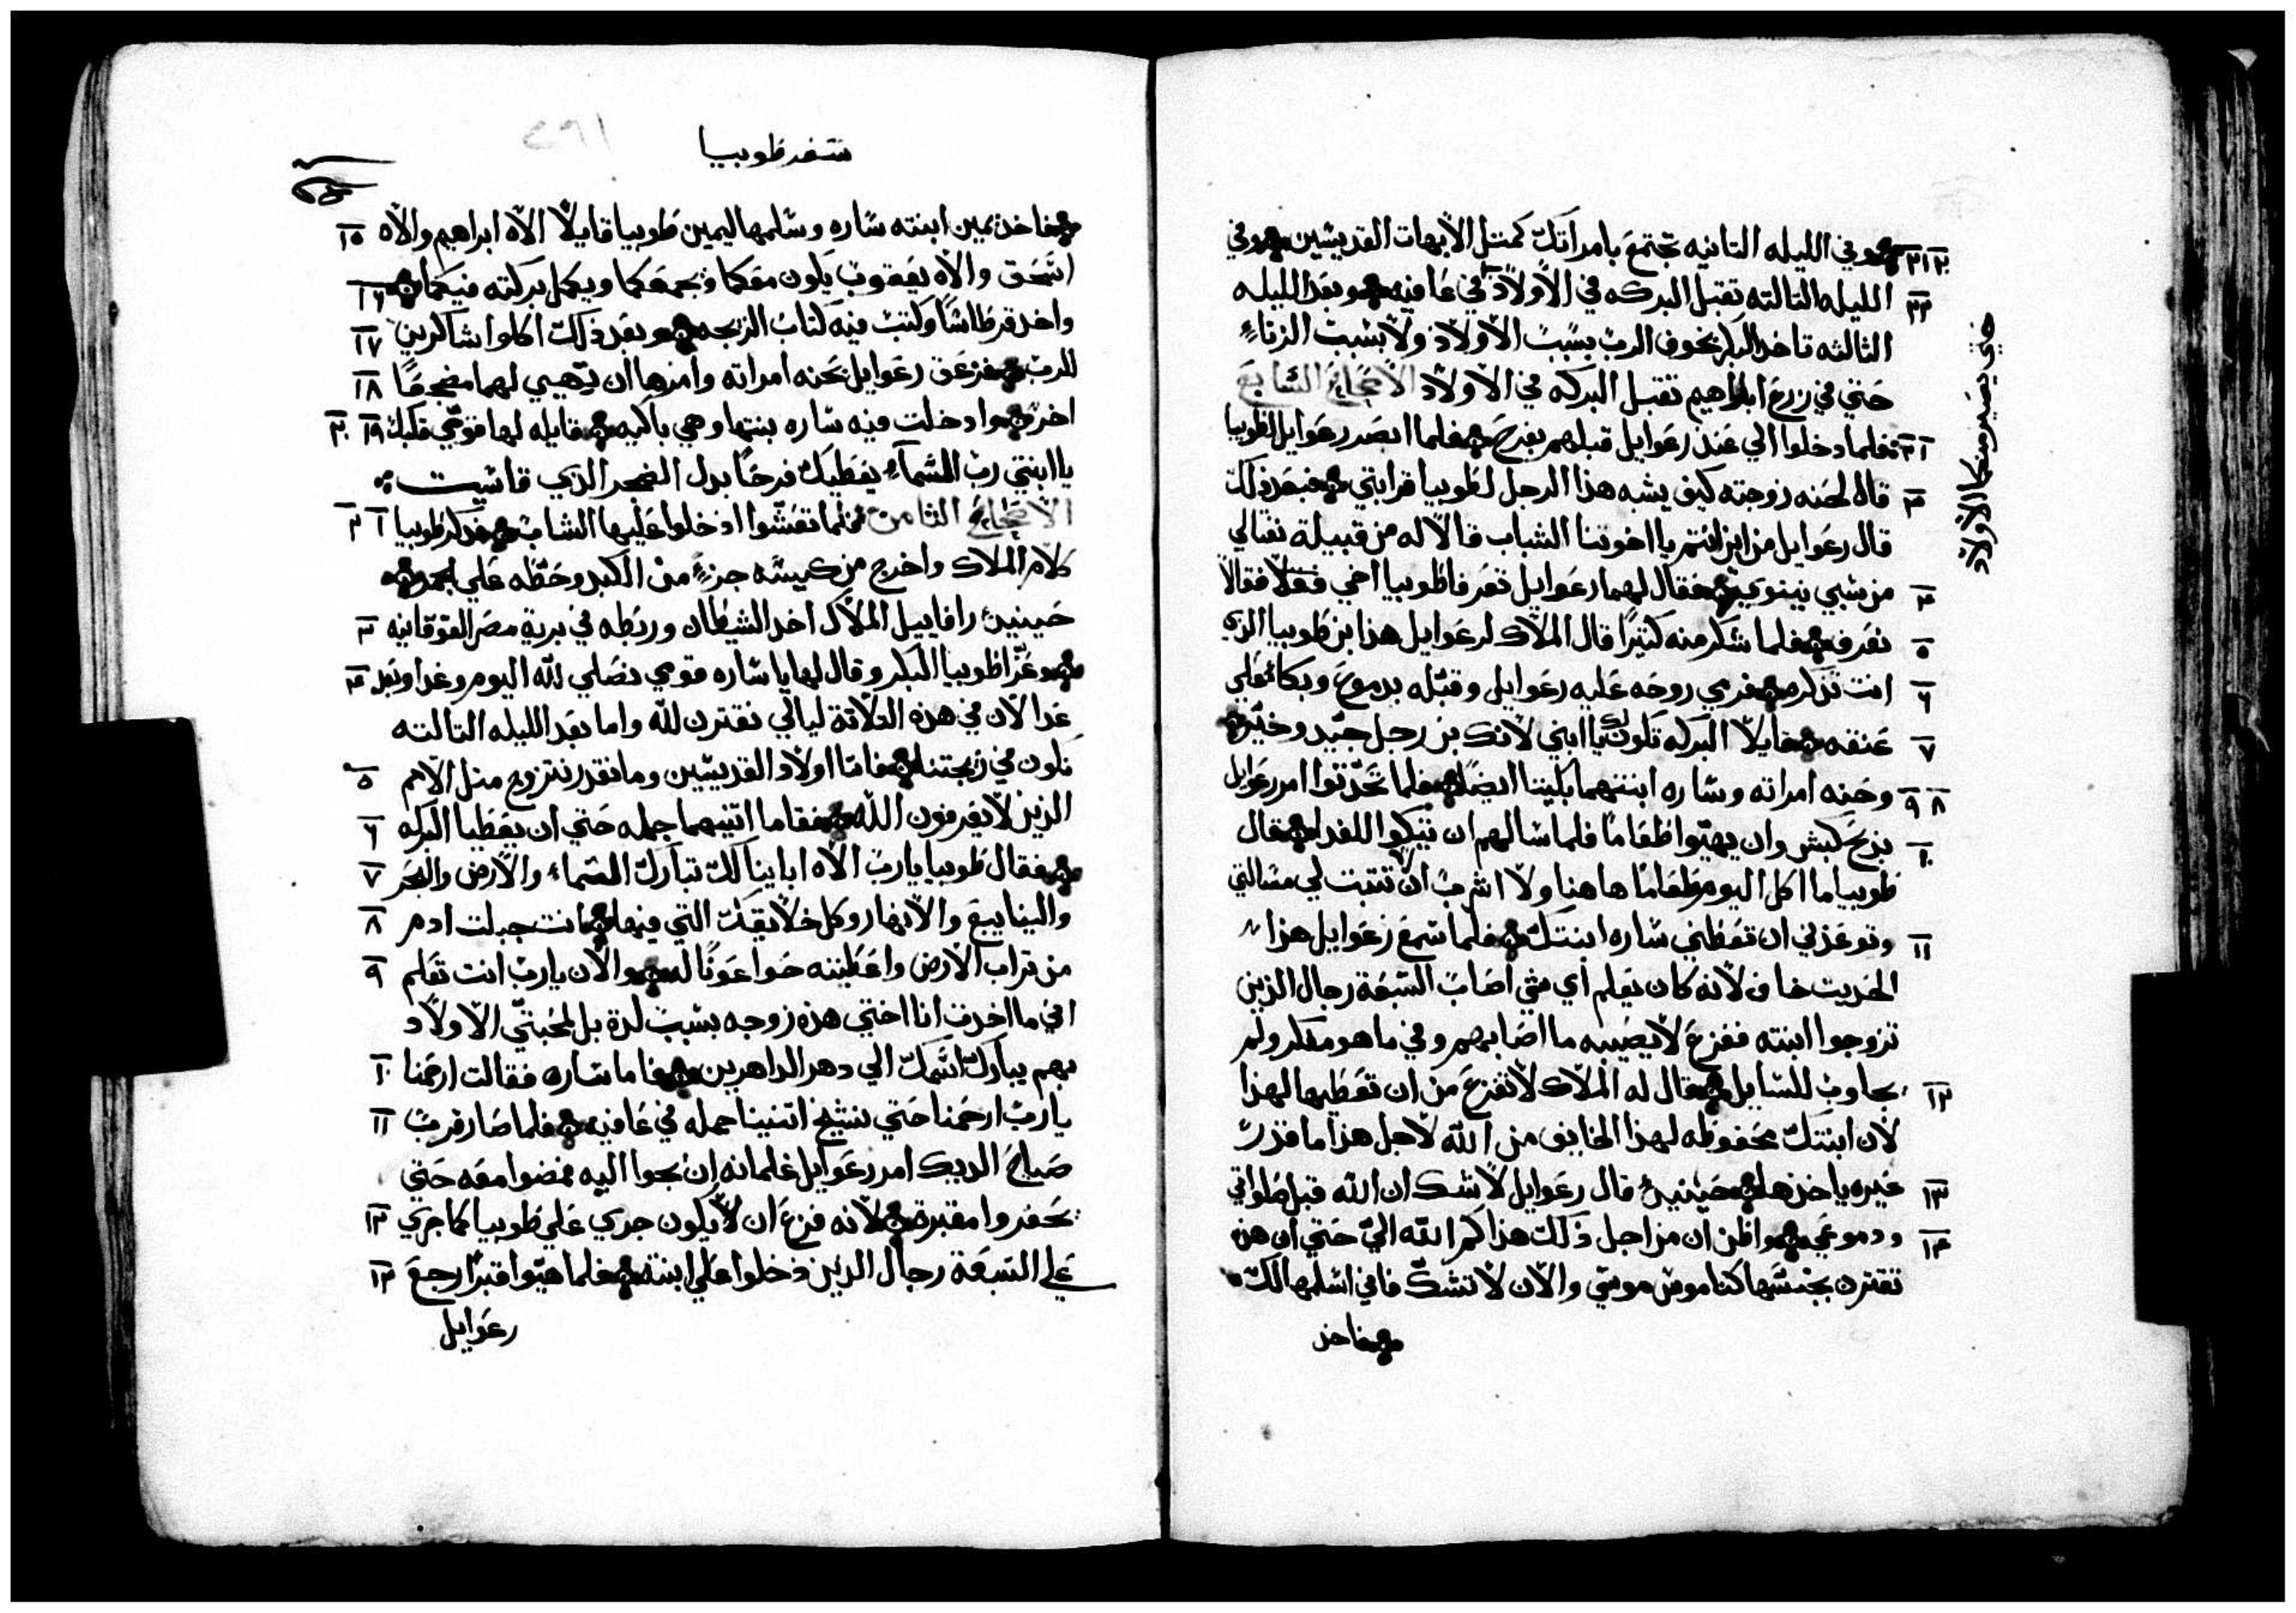 وفي الليله التانيه تجتمع بامراتك كمتل الابهات القديسين وفي ٢٠ ٢١
الليله التالته تقبل البركه في الاولاد في عافيه وبعد الليله ٢٢
التالته تاخد البكر بخوف الرب بسبب الاولاد ولا بسبب الزناء
حتي في زرع ابراهيم تقبل البركه في الاولاد الاصحاح السابع
حتي يصير منكما الاولاد
فلما دخلوا الي عند رعوايل قبلهم بفرح فلما ابصر رعوايل لطوبيا ١ ٢
قال لحنه زوجته كيف يشبه هذا الرجل لطوبيا قرابتي فبعد ذلك ٣
قال رعوايل من اين انتم يا اخوتنا الشباب قالا له من قبيلة نفتالي
من سبي نينوي فقال لهما رعوايل تعرفا طوبيا اخي فقالا ٤
نعرفه فلما شكر منه كتيرًا قال الملاك لرعوايل هذا بن طوبيا الذي ٥
انت تذكره فرمي روحه عليه رعوايل وقبّله بدموع وبكاء علي ٦
عنقه قايلًا البركه تكون لك يا ابني لانك بن رجل جيّد وخيّر ٧
وحنه امراته وساره ابنتهما بكيتا ايضًا فلما تحدّتوا امر رعوايل ٨ ٩
بذبح كبش وان يهيّوا طعامًا فلما سالهم ان يتكوا للغدا قال ١٠
طوبيا ما اكل اليوم طعامًا هاهنا ولا اشرب الا ان تتبت لي مسالتي
وتوعدني ان تعطيني ساره ابنتك فلما سمع رعوايل هذا ١١
الحديت خاف لانه كان يعلم اي شي اصاب السبعة رجال الذين
تزوجوا ابنته ففزع لا يصيبه ما اصابهم وفي ما هو مفكر ولم
يجاوب للسايل قال له الملاك لا تفزع من ان تعطيها لهذا ١٢
لان ابنتك محفوظه لهذا الخايف من الله لاجل هذا ما قدر
غيره ياخدها حينيذٍ قال رعوايل لا شك ان الله قبل صلواتي ١٣
ودموعي واظن ان من اجل ذلك هذاكم الله اليّ حتي ان هذه ١٤
تقترن بجنسها كناموس موسي والان لا تشك فاني اسلمها لك
فاخد
سفر طوبيا
٢٩١
فاخد يمين ابنته ساره وسلمها ليمين طوبيا قايلًا الاه ابراهيم والاه ١٥
اسحق والاه يعقوب يكون معكما ويجمعكما ويكمل بركته فيكما ١٦
واخد قرطاسًا وكتب فيه كتاب الزيجه وبعد ذلك اكلوا شاكرين ١٧
للرب فزعق رعوايل بحنه امراته وامرها ان تهيي لهما مضجعًا ١٨
اخر وادخلت فيه ساره بنتها وهي باكيه قايله لها قوّي قلبك ١٩ ٢٠
يا ابنتي رب السماء يعطيك فرحًا بدل الضجر الذي قاسيت
الاصحاح الثامن فلما تعشّوا ادخلوا عليها الشاب فدكر طوبيا ١ ٢
كلام الملاك واخرج من كيسه جزءٍ من الكبد وحطّه علي الجمر
حينيذٍ رافاييل الملاك اخد الشيطان وربطه في برية مصر الفوقانيه ٣
وعزّا طوبيا البكر وقال لها يا ساره قومي نصلي لله اليوم وغدا وبعد ٤
غدا لان في هذه التلاتة ليالي نقترن لله واما بعد الليله التالته
نكون في زيجتنا فانا اولاد القديسين وما نقدر نتزوج متل الامم ٥
الذين لا يعرفون الله فقاما اتنيهما جمله حتي ان يعطيا البركه ٦
فقال طوبيا يا رب الاه ابايينا لك تبارك السماء والارض والبحر ٧
والينابيع والانهار وكل خلايقك التي فيها انت جبلت ادم ٨
من تراب الارض واعطيته حوا عونًا له والان يا رب انت تعلم ٩
اني ما اخدت انا اختي هذه زوجه بسبب لدة بل لمحبتي الاولاد
بهم يبارك اسمك الي دهر الداهرين فاما ساره فقالت ارحمنا ١٠
يا رب ارحمنا حتي نشيخ اتنينا جمله في عافيه فلما صار قرب ١١
صياح الديك امر رعوايل غلمانه ان يجوا اليه فمضوا معه حتي
يحفروا مقبرة لانه فزع ان لا يكون جري علي طوبيا كما جري ١٢
علي السبعة رجال الدين دخلوا علي ابنته فلما هيّوا قبرًا رجع ١٣
رعوايل